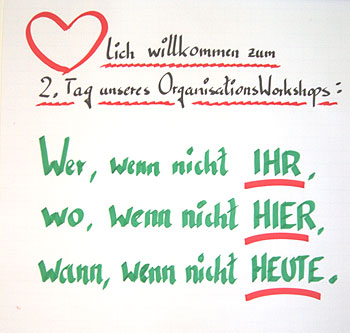 lich willkommen zum
2. Tag unseres OrganisationsWorkshops:
Wer, wenn nicht IHR,
wo, wenn nicht HIER,
wann, wenn nicht HEUTE.